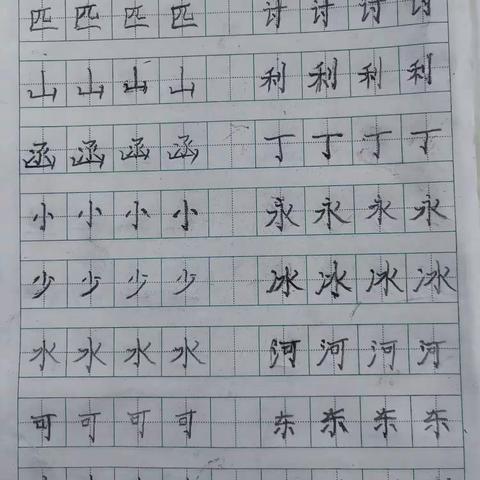 匹匹匹匹 讨讨讨讨
山山山山 利利利利
函函函函 丁丁丁丁
小小小小 永永永永
少少少少 冰冰冰冰
水水水水 河河河河
可可可可 东东东东